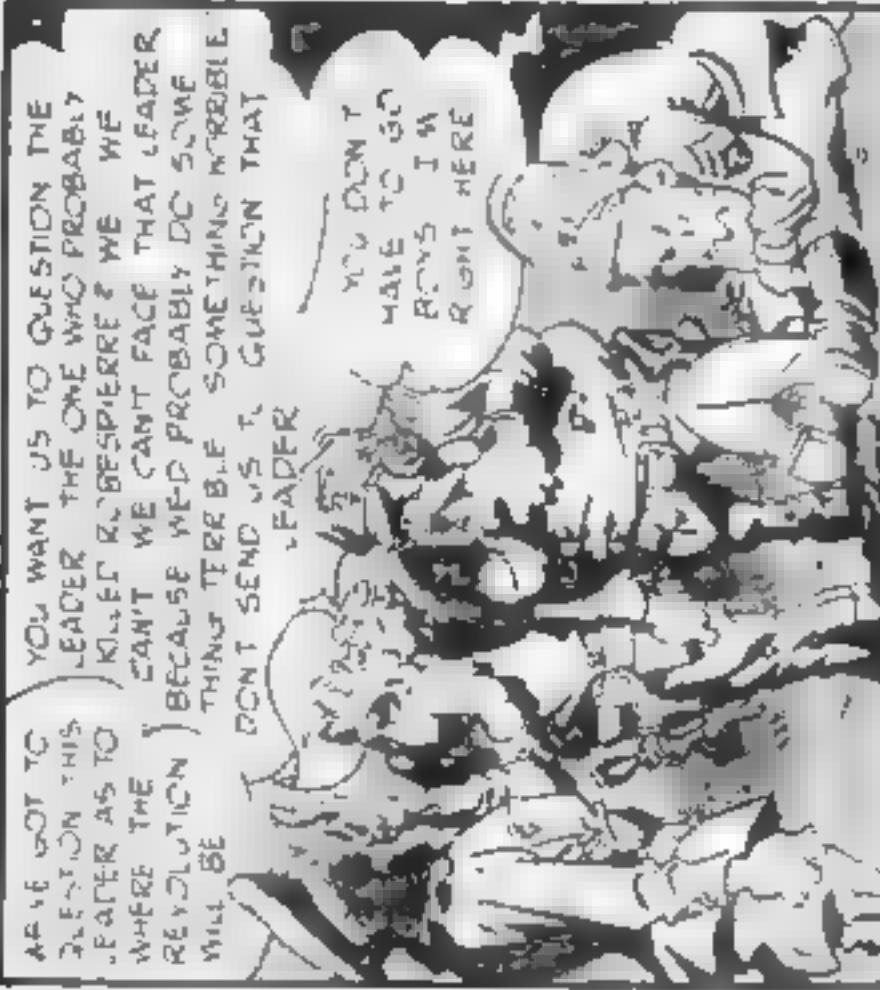 WE'VE GOT TO
QUESTION THIS
LEADER AS TO
WHERE THE
REVOLUTION
WILL BE
YOU WANT US TO QUESTION THE
LEADER THE ONE WHO PROBABLY
KILLED ROBESPIERRE? WE WE
CAN'T WE CAN'T FACE THAT LEADER
BECAUSE WE'D PROBABLY DO SOME
THING TERRIBLE SOMETHING HORRIBLE
DON'T SEND US TO QUESTION THAT
LEADER
YOU DON'T
HAVE TO GO
BOYS I'M
RIGHT HERE